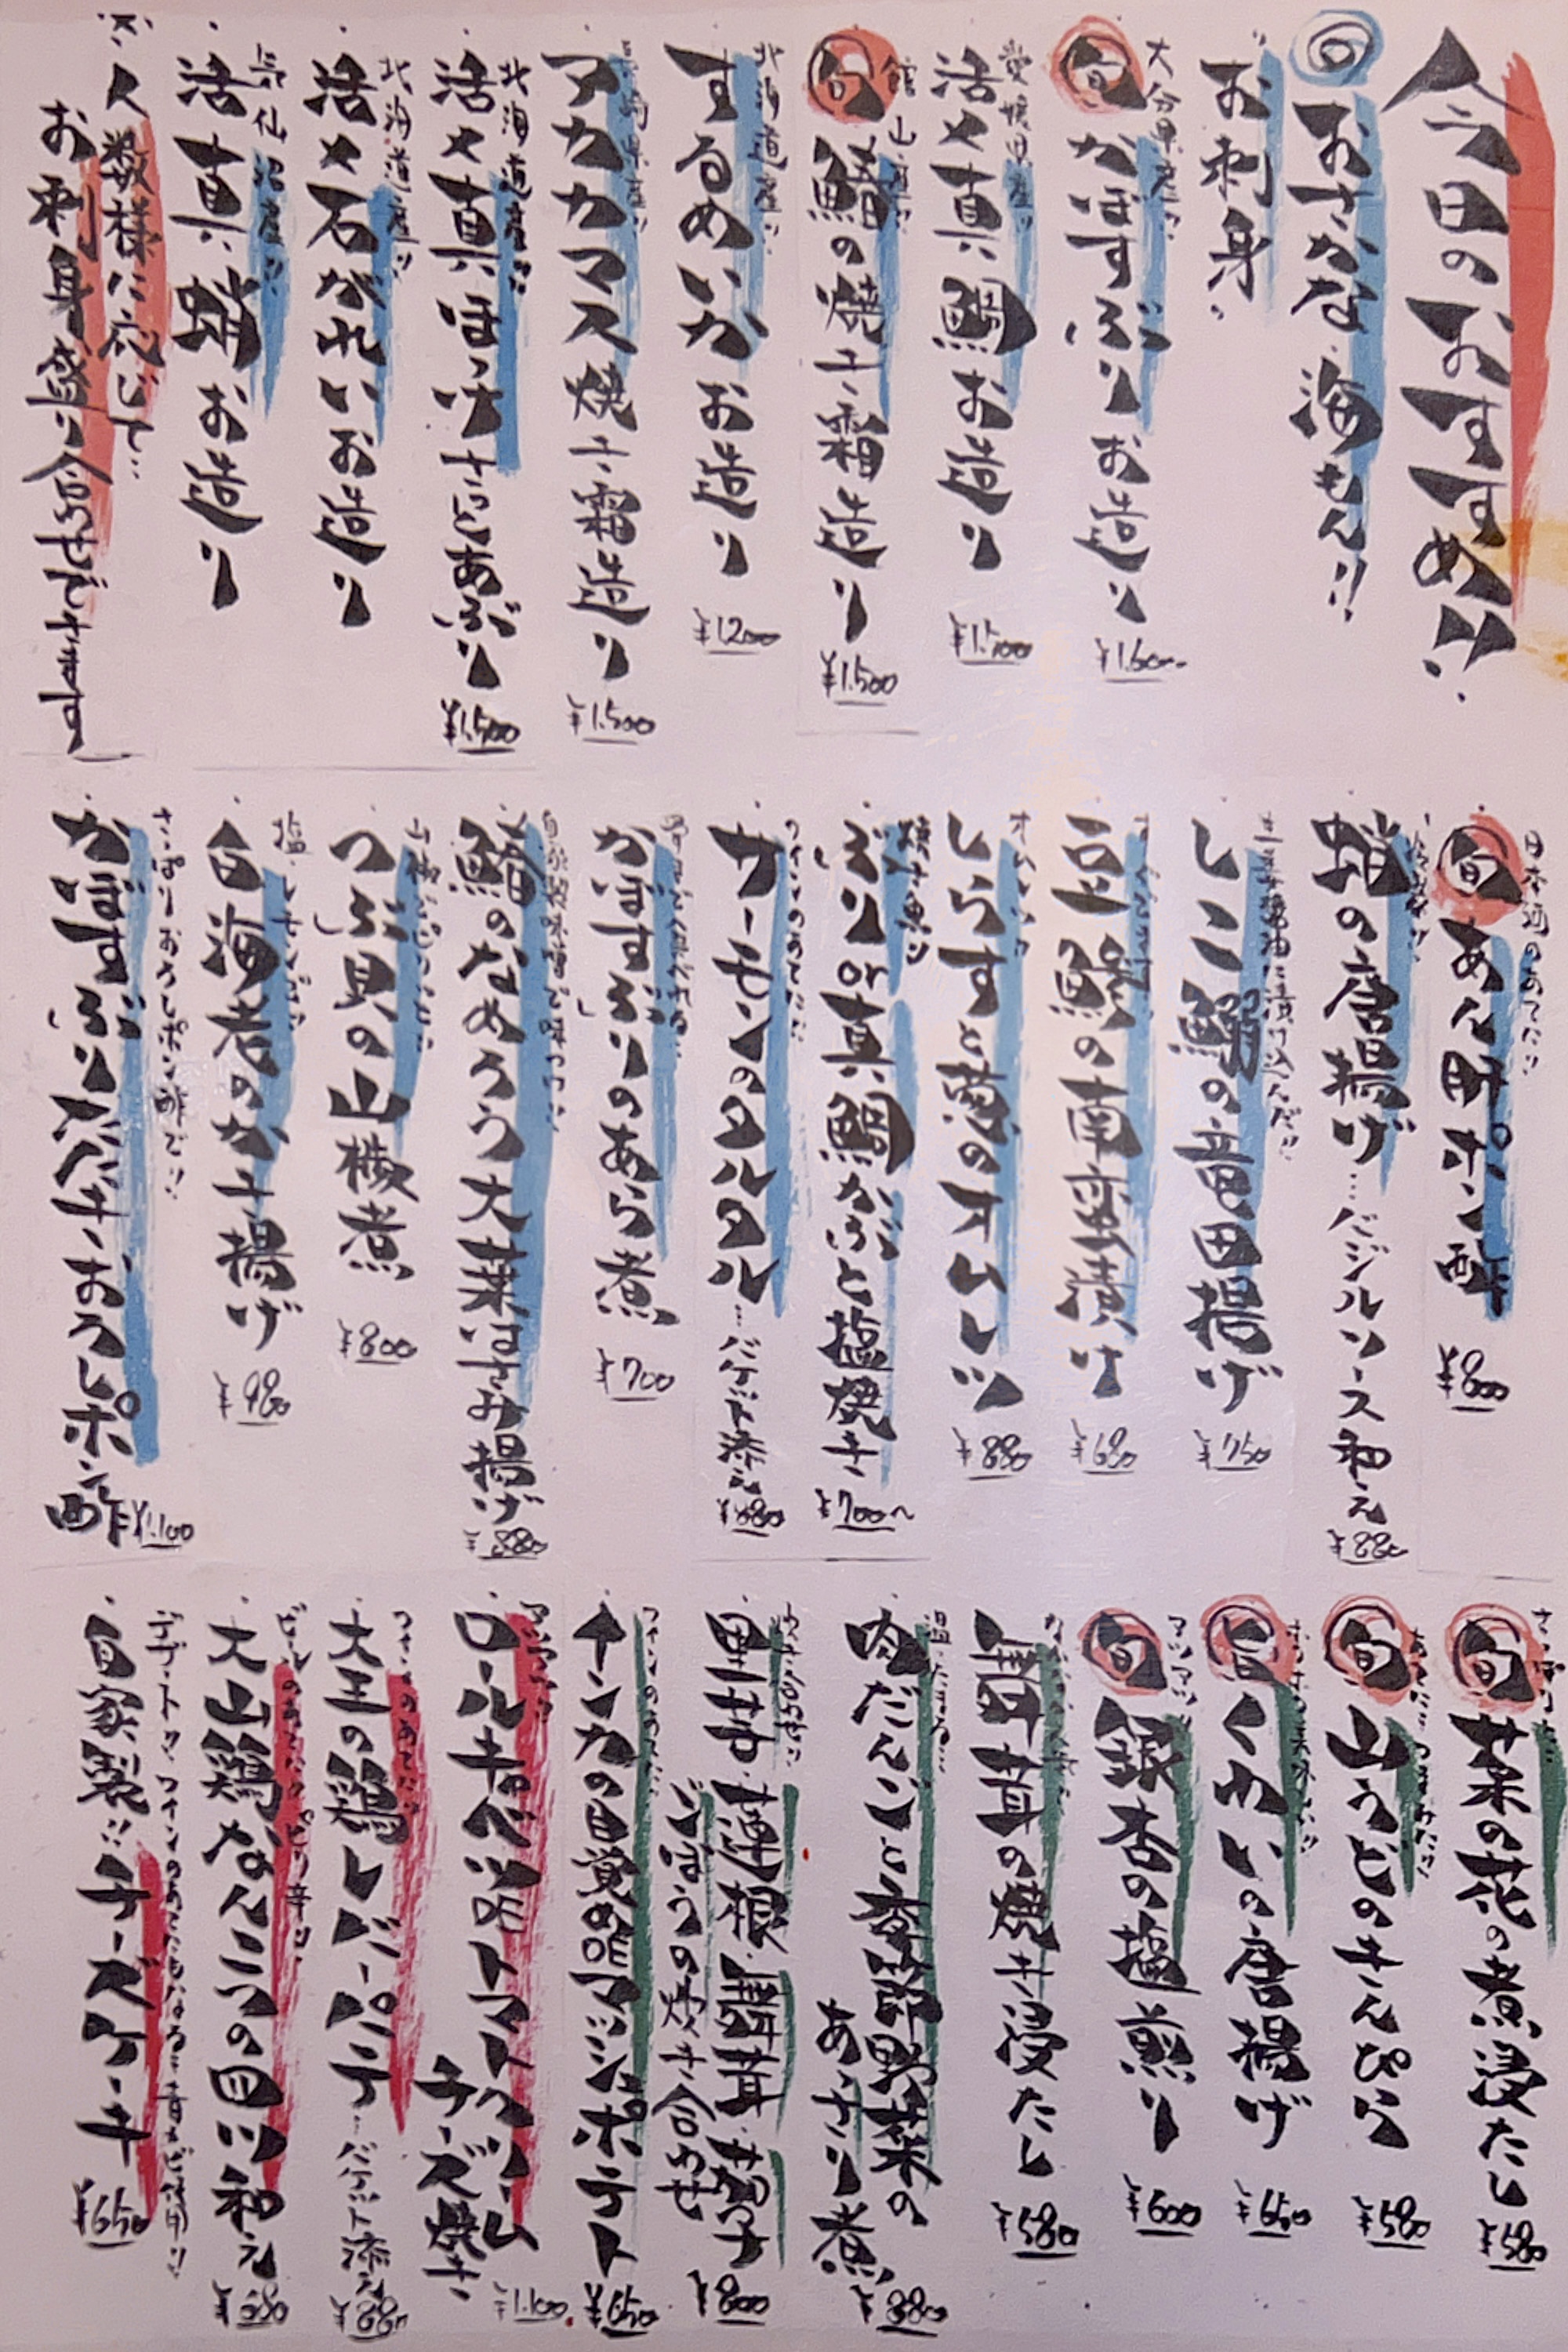 今日のおすすめ!!
旬
おさかな 海もん!!
"お刺身"
大分県産!!
旬 かぼすぶりお造り ¥1.600~
愛媛県産!!
活〆真鯛お造り
館山産!!
旬 鰆の焼き霜造り ¥1.500
北海道産!!
・するめいかお造り ¥1200
・アカカマス焼き霜造り ¥1.500
北海道産!!
・活〆真ほっけさっとあぶり ¥1.500
北海道産!!
・活〆石がれいお造り
気仙沼産!!
・活真蛸お造り
※人数様に応じて…
お刺身盛り合わせできます
日本酒のあてに!!
旬 あん肝ポン酢 ¥800
・蛸の唐揚げ…バジルソース和え ¥880
・しこ鰯の竜田揚げ ¥750
・豆鯵の南蛮漬け ¥680
・しらすと葱のオムレツ ¥880
・ぶりor真鯛かぶと塩焼き ¥700~
ワインのあてに!!
・サーモンのタルタル…バケット添え ¥880
・かぼすぶりのあら煮 ¥700
・鰺のなめろう大葉はさみ揚げ ¥880
・つぶ貝の山椒煮 ¥800
塩レモンで!!
・白海老のかき揚げ ¥980
さっぱりおろしポン酢で!!
・かぼすぶりたたき・おろしポン酢 ¥1.100
さっぱりと…
旬 菜の花の煮浸たし ¥580
旬 山うどのきんぴら ¥580
旨 くわいの唐揚げ ¥650
アツアツ!!
旬 銀杏の塩煎り ¥600
・舞茸の焼き浸たし ¥580
・肉だんごと春節野菜のあっさり煮 ¥880
・里芋 蓮根 舞茸 茄子
ごぼうの炊き合わせ ¥800
ワインのあてに!!
・インカの目覚め塩マッシュポテト ¥650
アツアツ!!
・ロールキャベツトマトクリーム
チーズ焼き ¥1.100
ワインのあてに!!
・大王の鶏レバーパテ…バケット添え ¥880
ビールのあてに!!ピリ辛!!
・大山鶏なんこつの目い和え ¥680
デザートに、ワインのあてにも
・自家製!!チーズケーキ ¥650